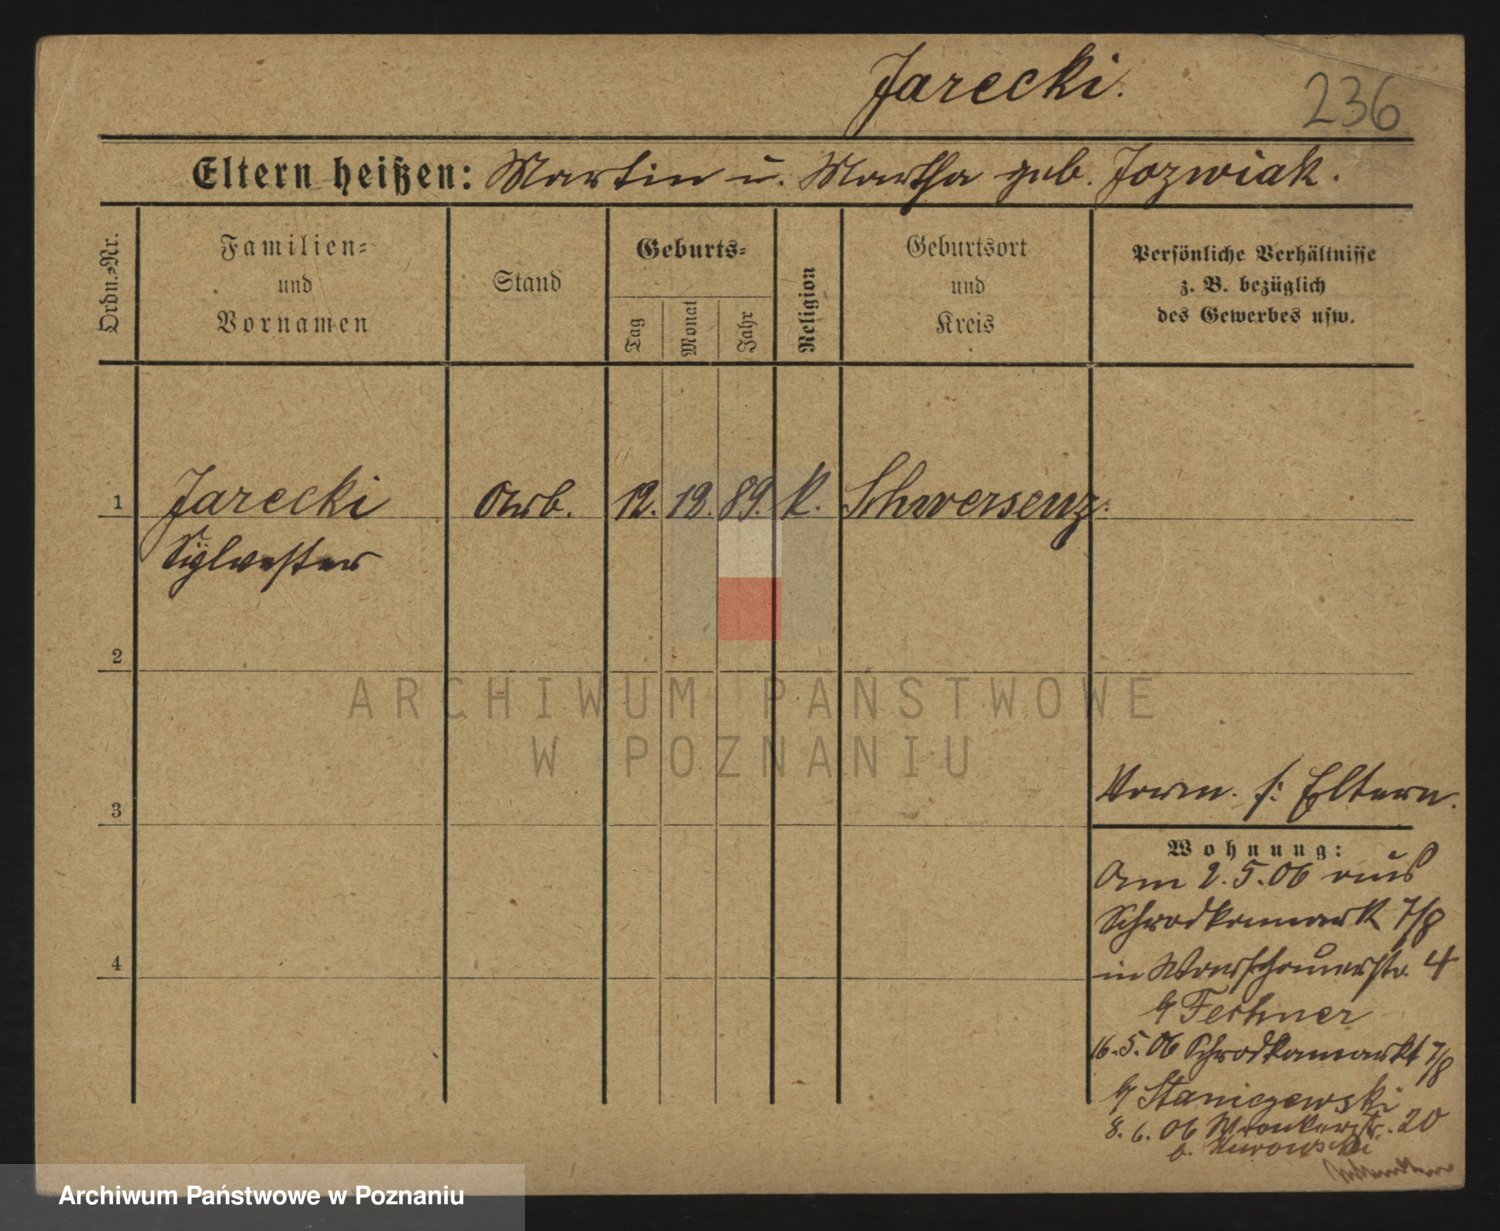 Jarecki.
236
Eltern heißen: Martin u. Martha geb. Jozwiak.
Ordn.-Nr.
Familien-
und
Vornamen
Stand
Geburts-
Tag
Monat
Jahr
Religion
Geburtsort
und
Kreis
Persönliche Verhältnisse
z. B. bezüglich
des Gewerbes usw.
1 Jarecki Arb. 12. 12. 89. K. Schwersenz.
Sylvester
2
ARCHIWUM PAŃSTWOWE
W POZNANIU
3
Vorm. s: Eltern.
Wohnung:
Am 2.5.06 aus
Schrodkamarkt 7/8
4
in Warschauerstr. 4
b/ Fechner
16.5.06 Schrodkamarkt 7/8
b/ Staniczewski
8.6.06 Wronkerstr. 20
b.
Archiwum Państwowe w Poznaniu